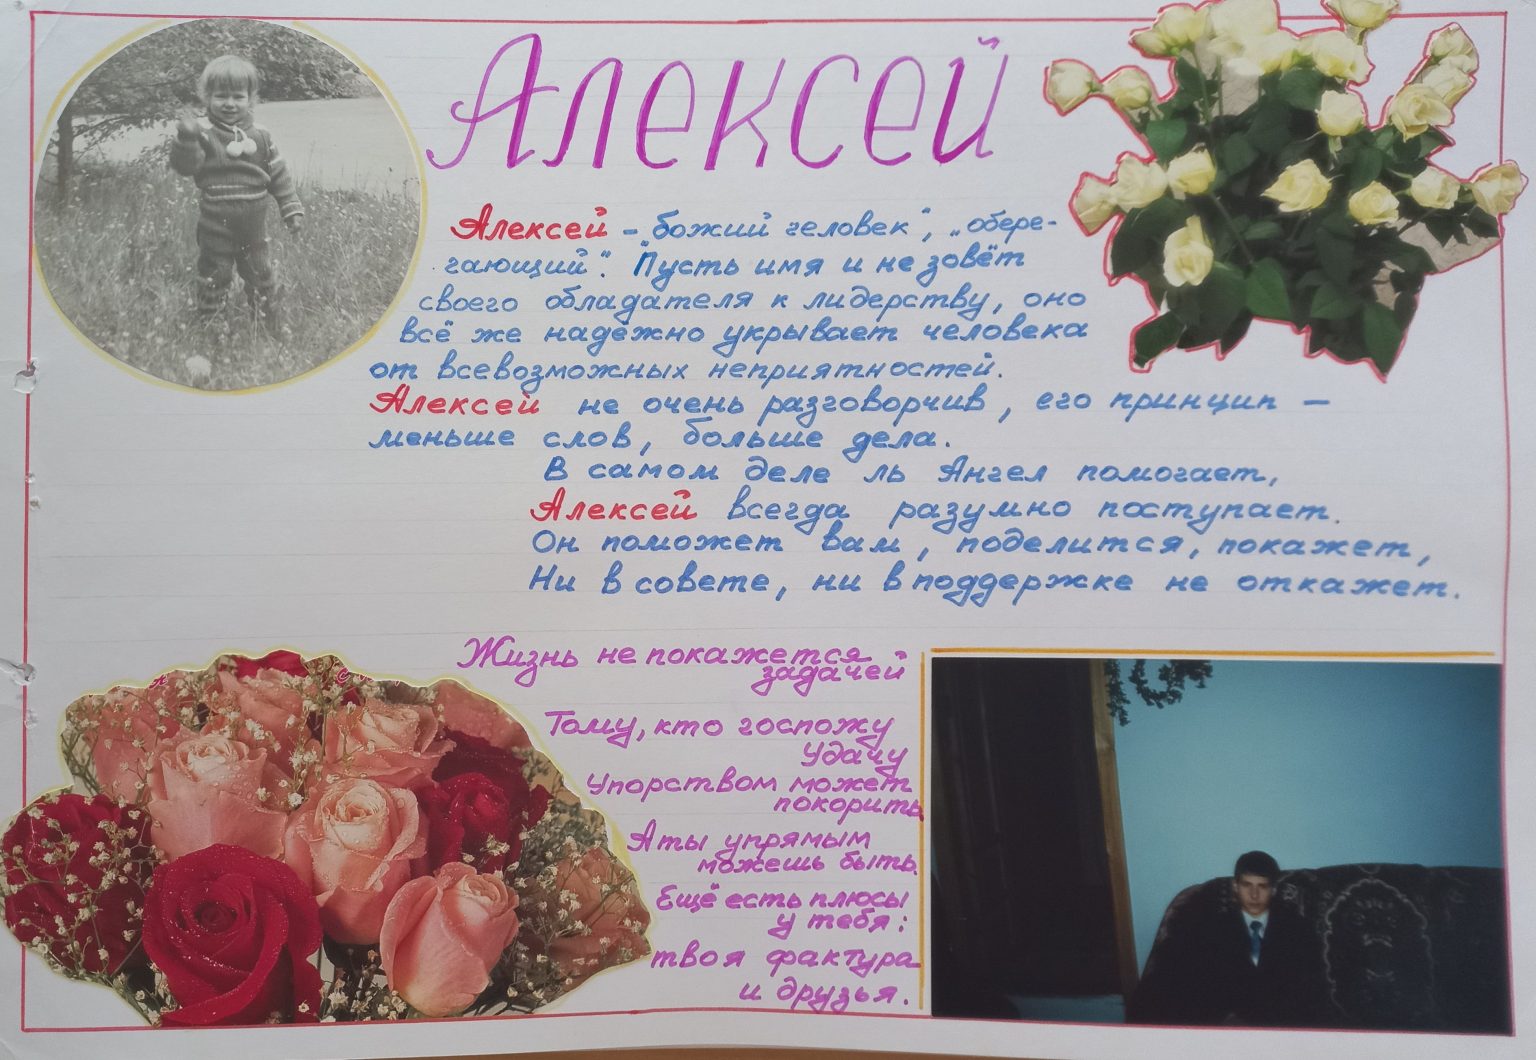 Алексей
Алексей - "божий человек", "обере-
гающий". Пусть имя и не зовёт
своего обладателя к лидерству, оно
всё же надёжно укрывает человека
от всевозможных неприятностей.
Алексей не очень разговорчив, его принцип —
меньше слов, больше дела.
В самом деле ль Ангел помогает,
Алексей всегда разумно поступает.
Он поможет вам, поделится, покажет,
Ни в совете, ни в поддержке не откажет.
Жизнь не покажется
задачей
Тому, кто госпожу
Удачу
Упорством может
покорить
А ты упрямым
можешь быть.
Ещё есть плюсы
у тебя:
твоя фактура
и друзья.